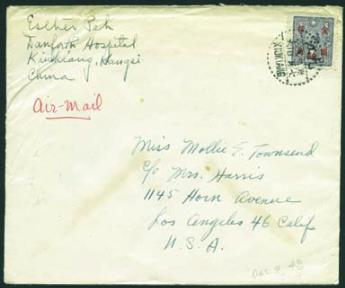 Esther Pah
Danforth Hospital
Kiukiang, Kiangsi
China
Air-Mail
KIUKIANG
Miss Mollie E. Townsend
c/o Mrs. Harris
1145 Horn Avenue
Los Angeles 46 Calif
U.S.A.